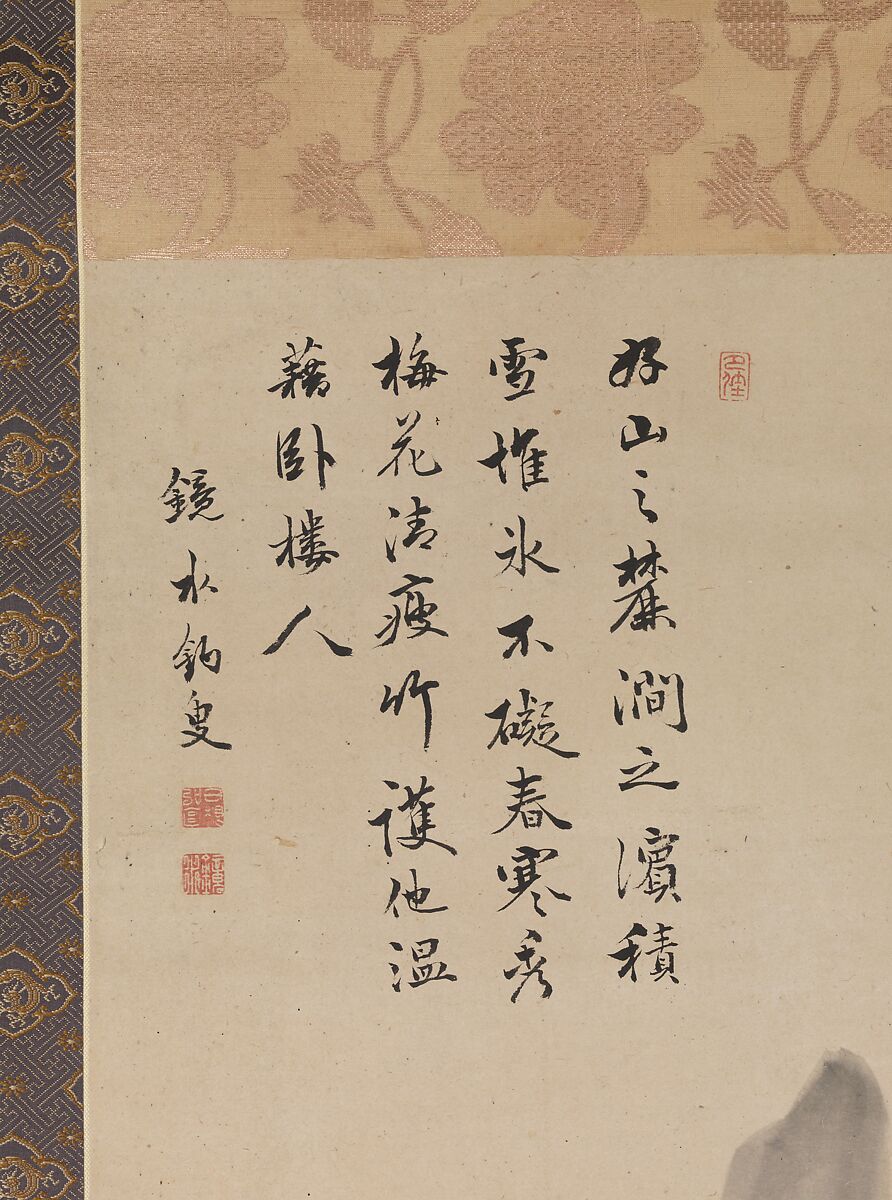 好山之麓澗之濵積
雪堆氷不礙春寒秀
梅花清瘦竹護他温
藉卧樓人
鏡水釣叟